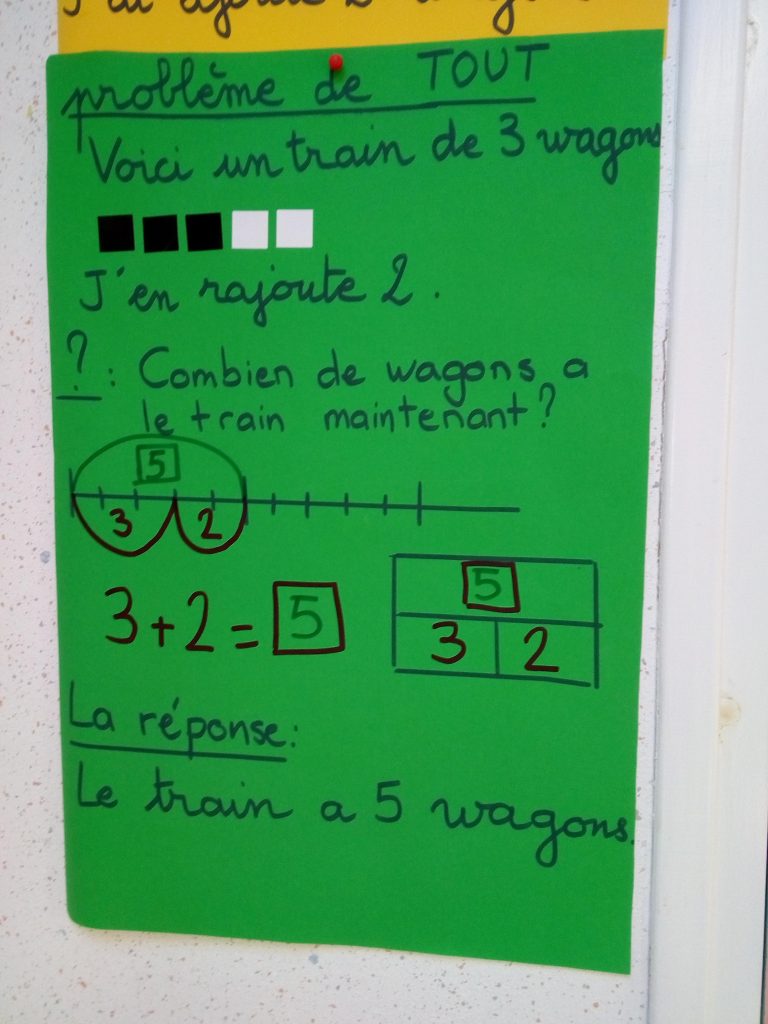 J'ai ajouté 2
problème de TOUT
Voici un train de 3 wagons
J'en rajoute 2.
? : Combien de wagons a
le train maintenant?
5
3 2
3+2= 5
5
3 2
La réponse:
Le train a 5 wagons.